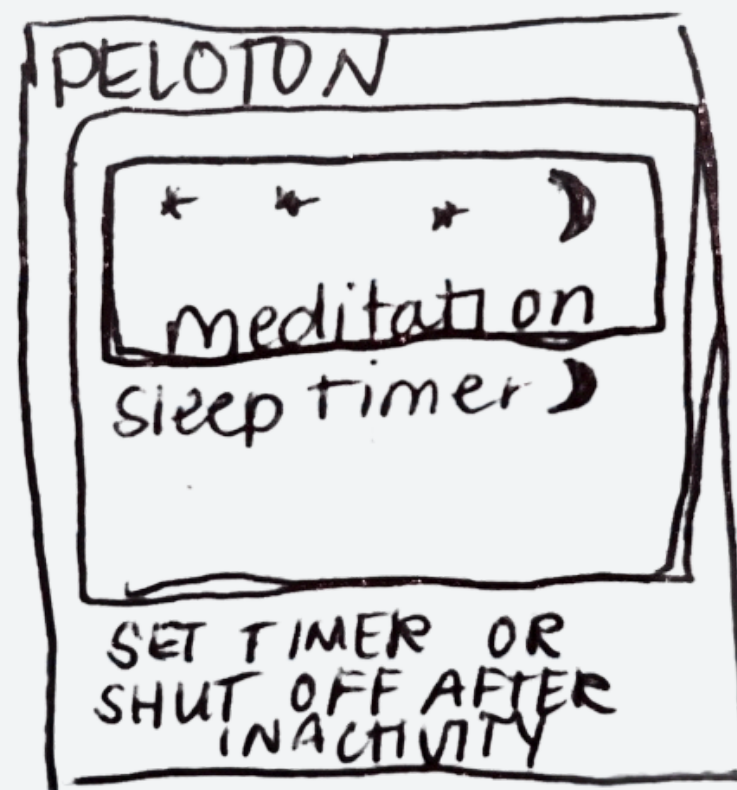 PELOTON
meditation
sleep timer
SET TIMER OR
SHUT OFF AFTER
INACTIVITY